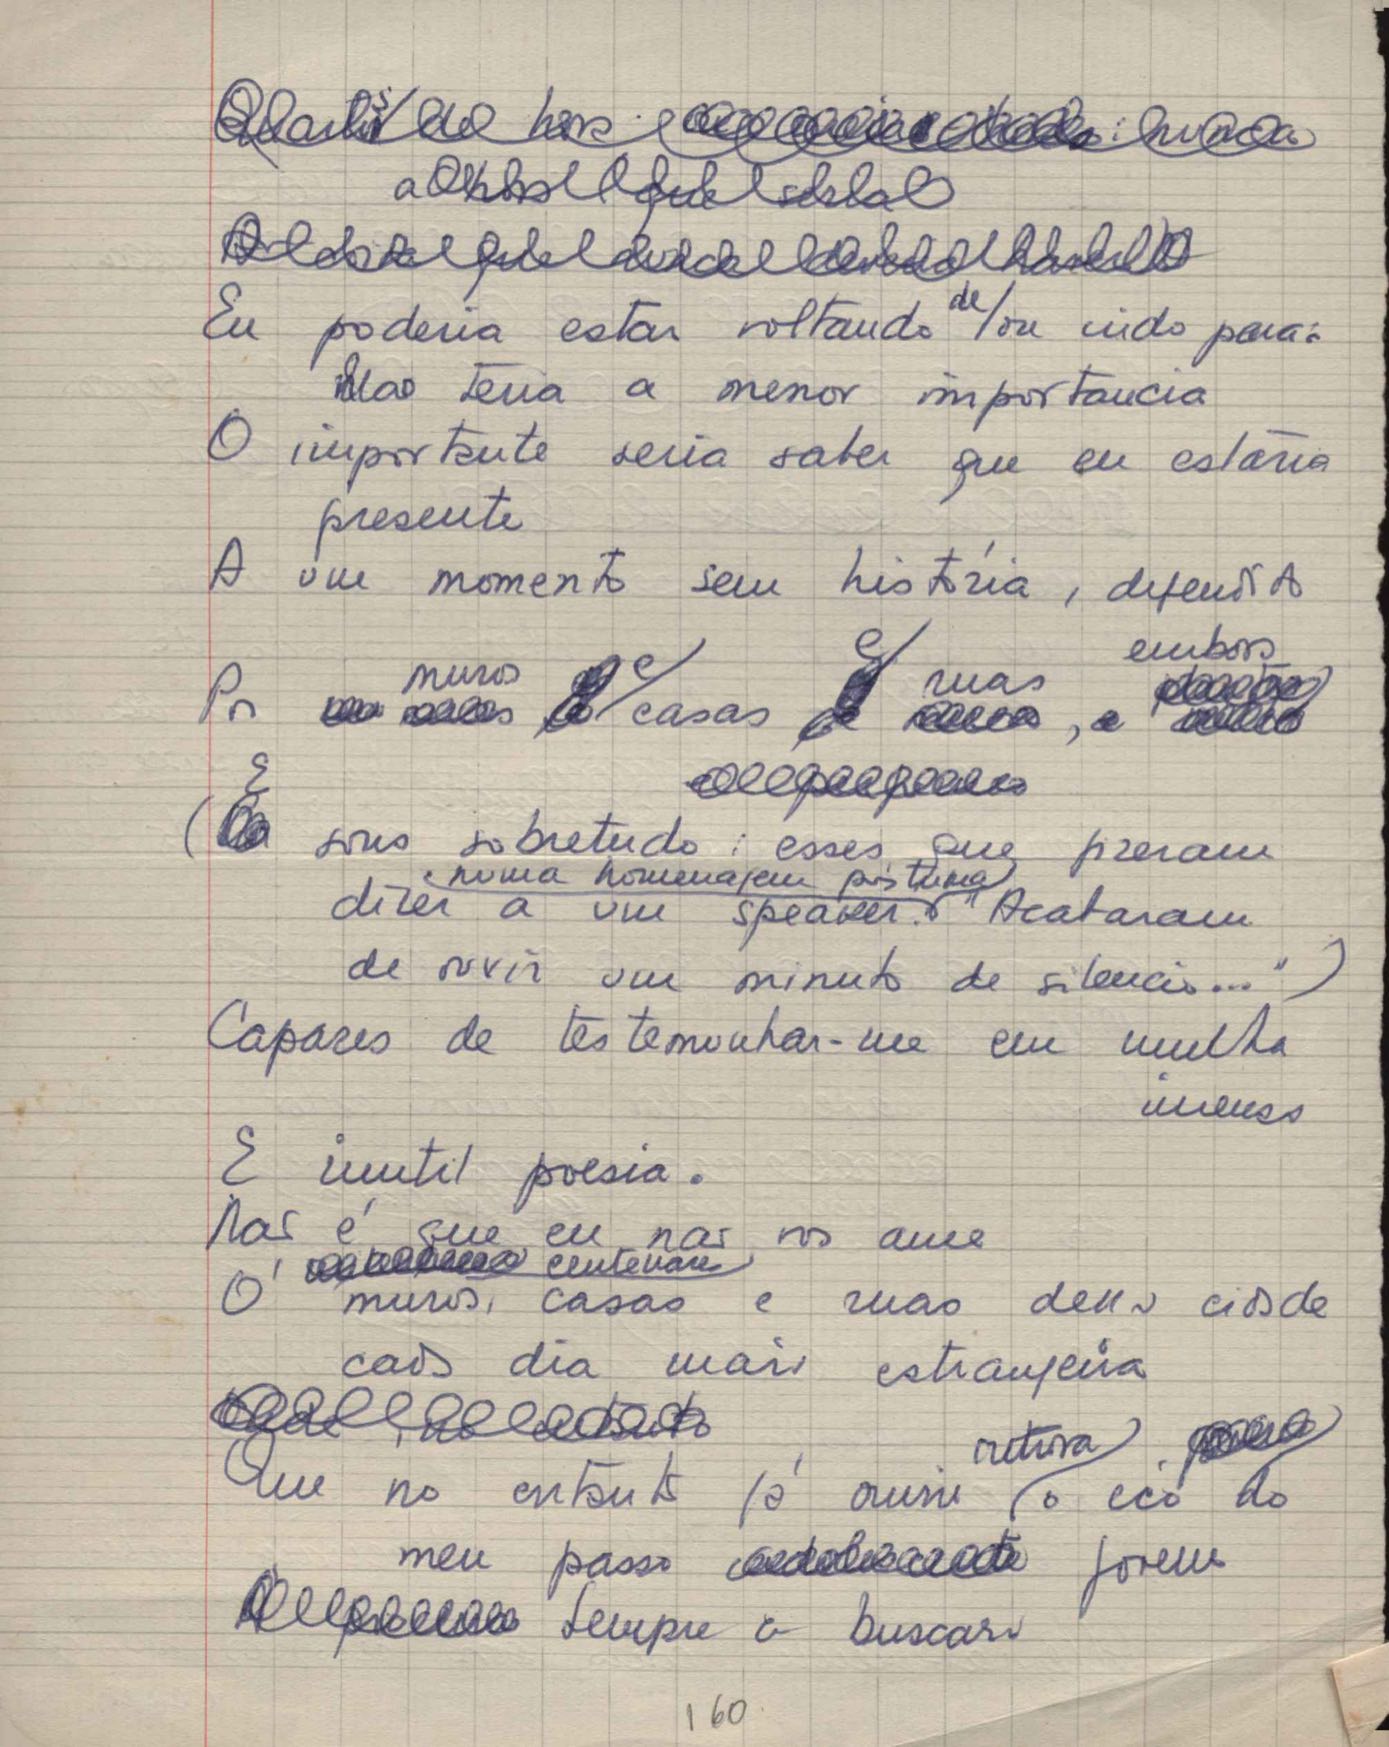 Eu poderia estar voltando de/ou indo para:
Não teria a menor importancia
O importante seria saber que eu estaria
presente
A um momento sem história, defendido
embora
muros e e ruas
Por casas ,
E
( sons sobretudo: esses que fizeram
numa homenagem póstuma
dizer a um speaker: "Acabaram
de ouvir um minuto de silencio...")
Capazes de testemunhar-me em minha
imensa
E inutil poesia.
Não é que eu não vos ame
centenare
Ó muros, casas e ruas dessa cidade
cada dia mais estrangeira
outrora
Que no entanto já ouviu o eco do
meu passo jovem
sempre a buscar
160